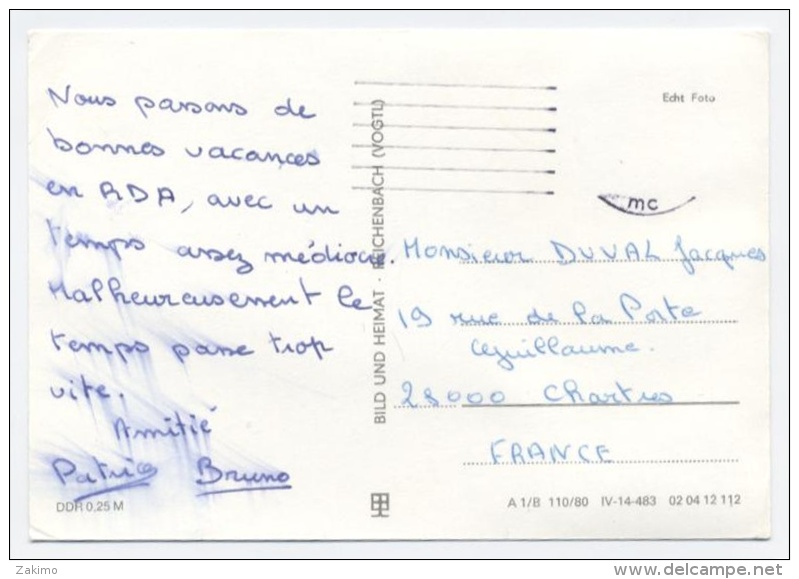 Nous passons de
bonnes vacances
en RDA, avec un
temps assez médiocre.
Malheureusement le
temps passe trop
vite.
Amitié
Patrice Bruno
DDR 0,25 M
BILD UND HEIMAT · REICHENBACH (VOGTL)
Echt Foto
mc
Monsieur DUVAL Jacques
19 rue de la Porte
Guillaume.
28000 Chartres
FRANCE
A 1/B 110/80 IV-14-483 02 04 12 112
© Zakimo
www.delcampe.net